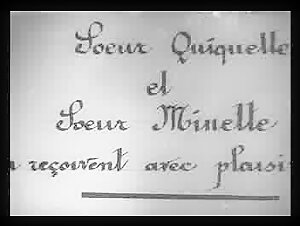 Soeur Quiquelle
et
Soeur Minette
reçoivent avec plaisi